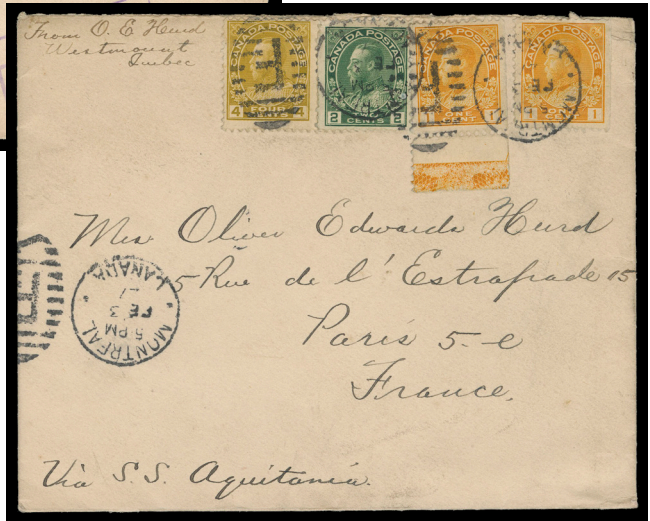 From O. E. Hurd
Westmount
Quebec
CANADA POSTAGE
4 FOUR CENTS 4
CANADA POSTAGE
2 TWO CENTS 2
CANADA POSTAGE
CANADA POSTAGE
1
Mrs Oliver Edwards Hurd
5 Rue de l'Estrapade 15
Paris 5-e
France.
MONTREAL
5 PM
FE 3
27
CANADA
Via S.S. Aquitania.